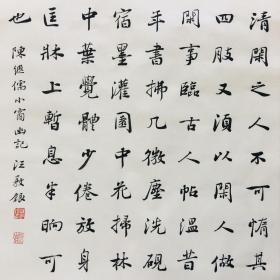 清閑無事可惰其
四肢又須以閑人做
閑事臨古人帖溫昔
年書拂几微塵洗硯
宿墨灌園中花掃林
中葉覺體少倦放身
匡牀上暫息半晌可
也
陳繼儒小窗幽記 汪敬銀